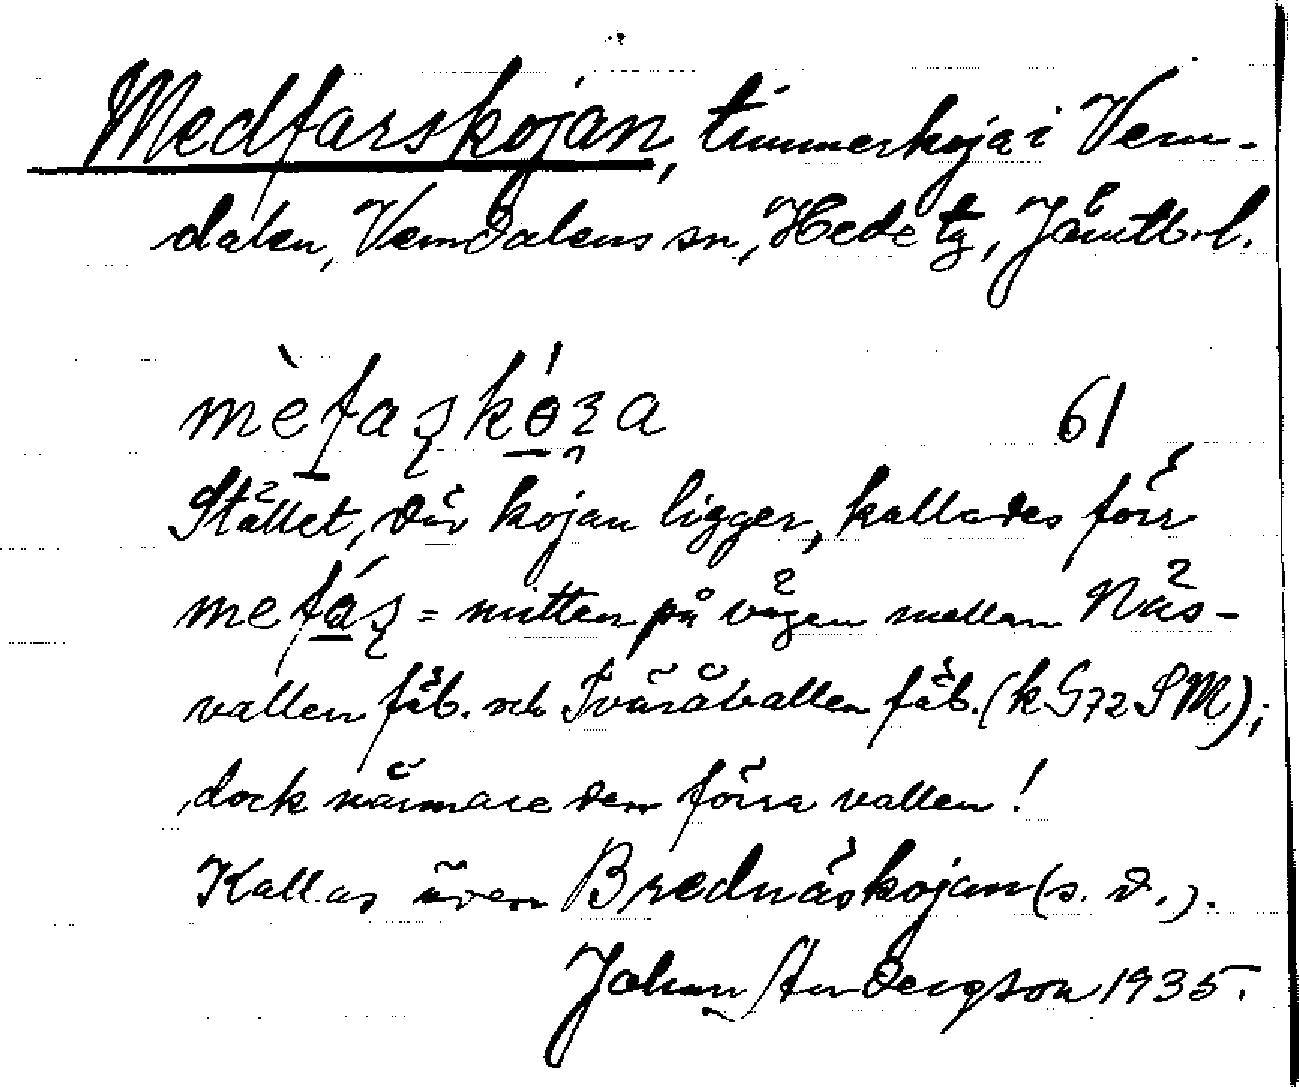 Medfarskojan, timmerkoja i Vem-
dalen, Vemdalens sn, Hede tg, Jämtl. l.
mèfaʂkóʒa 61
Stället, där kojan ligger, kallades förr
mefáʂ = mitten på vägen mellan Näs-
vallen fäb. och Tväråvallen fäb. (k G72 SM);
dock närmare den förra vallen!
Kallas även Brednäskojan (s. d.).
Johan 1935.